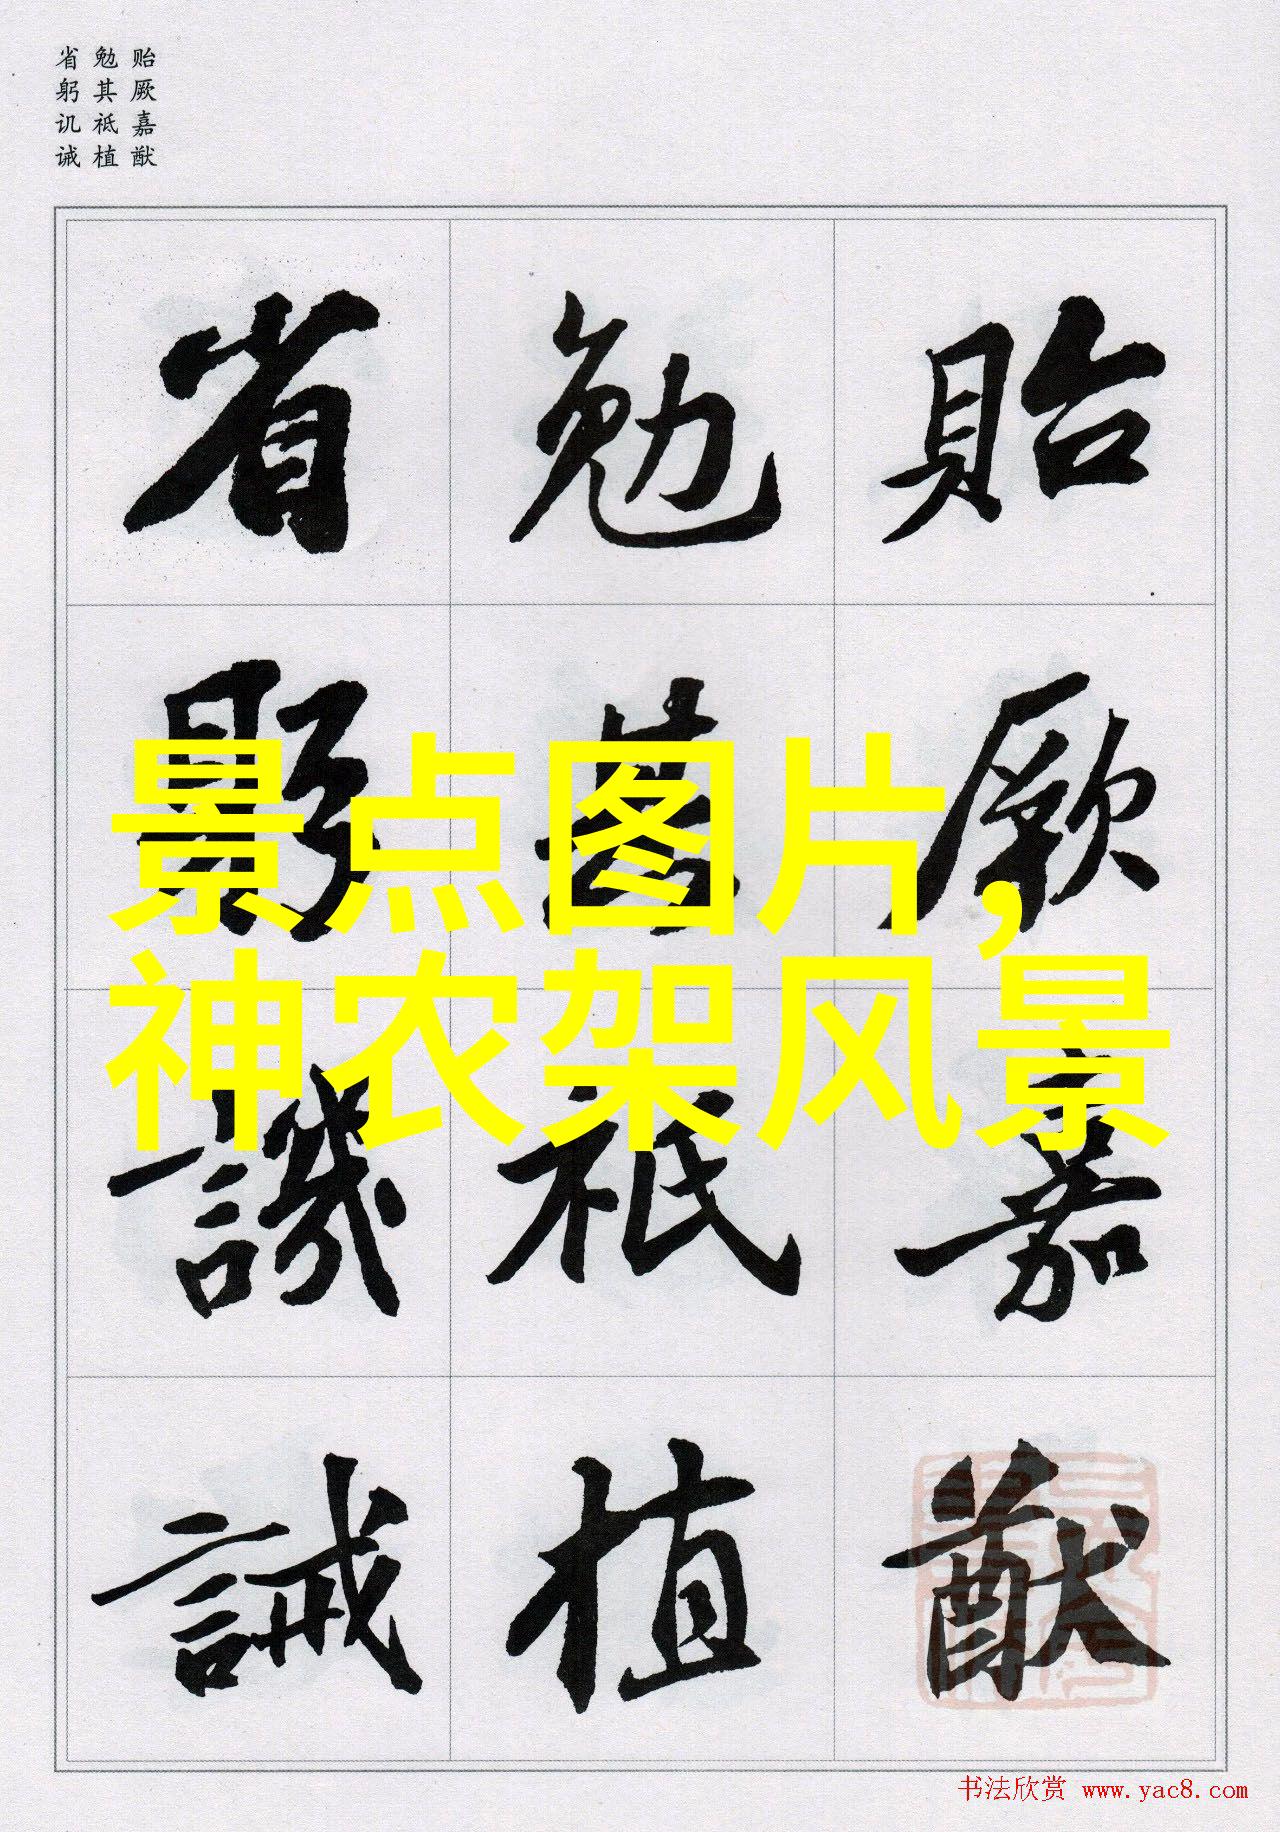 贻厥嘉猷
勉其祗植
省躬讥诫
貽厥嘉猷
勉其祗植
省躬譏誡
景点图片，
神农架风景
书法欣赏 www.yac8.com